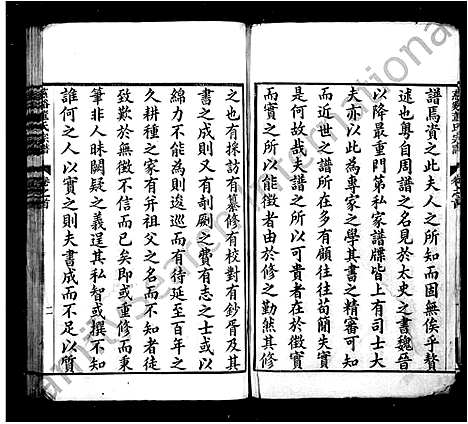 譜焉資之此夫人之所知而固無俟乎贅
述也粤自周譜之名見於太史之書魏晉
以降最重門第私家譜牒皆上有司士大
夫亦以此為專家之學其書之精審可知
也何哉夫
而近世之譜所在多有顧往往苟簡失實
實之所能徵者由於修之勤然其修
之也有採訪有纂修有校對有鈔胥及其
書之成則又有剞劂之費有志之士或以
綿力不能為則逡巡而有待延至百年之
久耕種之家有弁祖父之名而不知者徒
致歎於無徵不信而已矣即或重修而秉
筆非人昧闕疑之義逞其私智或撰不知
誰何之人以實之則夫書成而不足以質
慈谿董氏宗譜
卷之首
二
慈谿董氏宗譜
卷之首